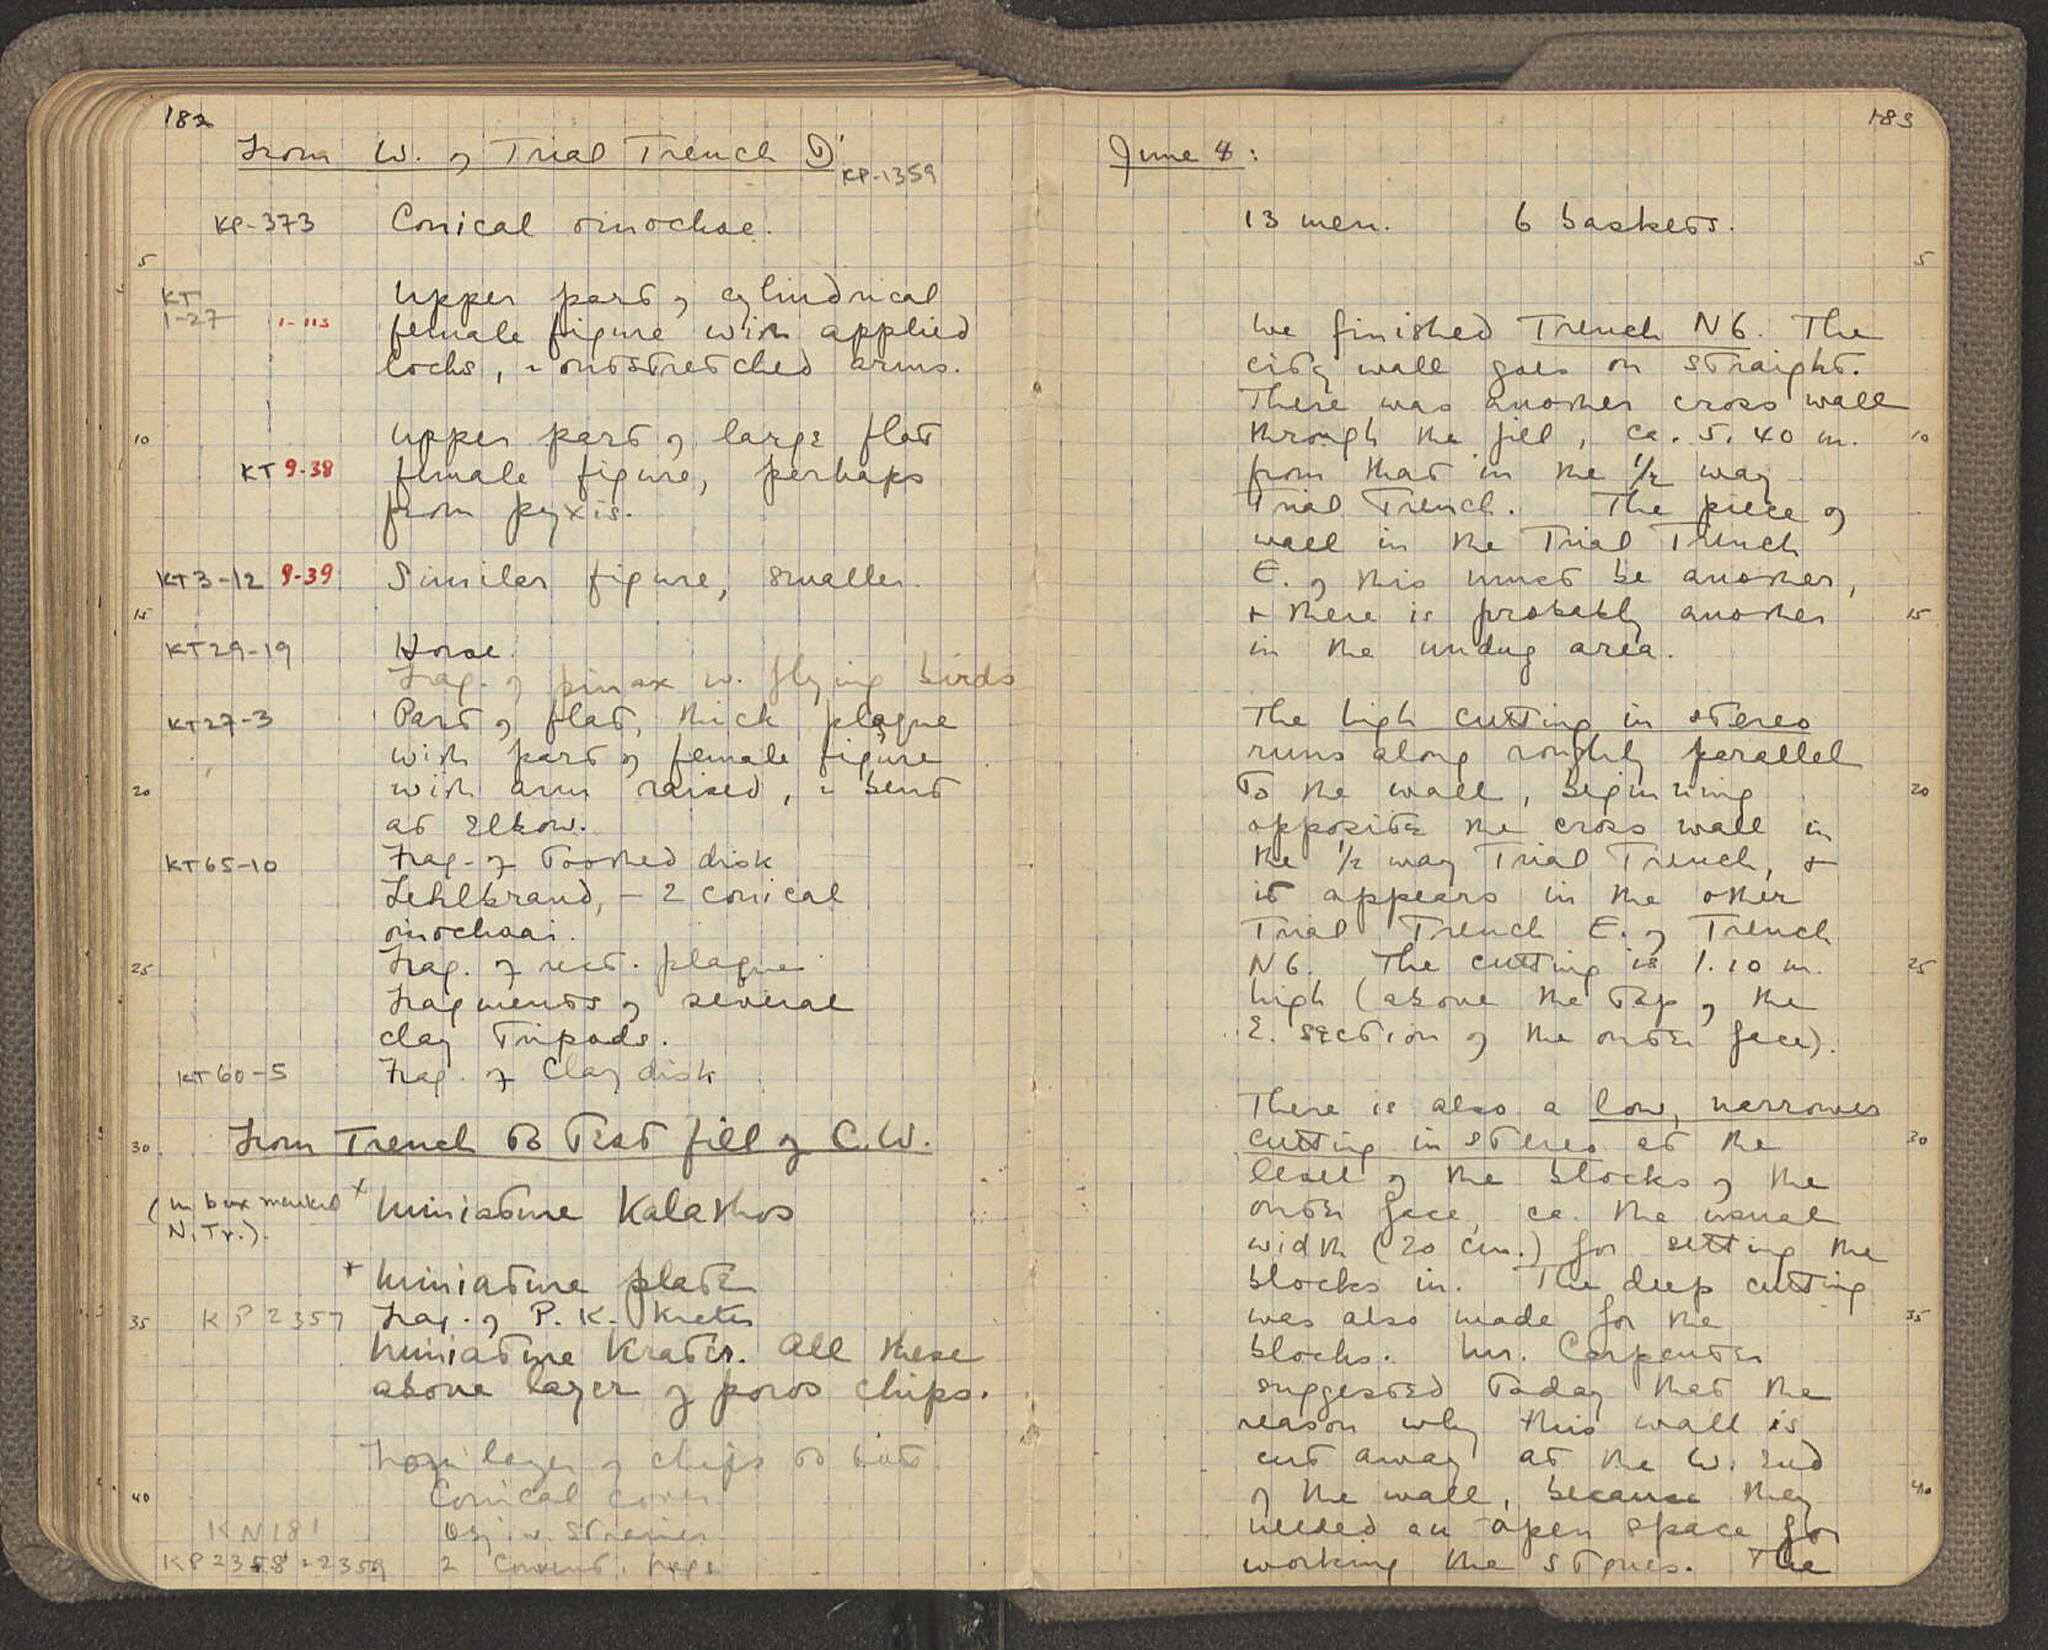 182
From W. of Trial Trench D'
KP-1359
KP-373 Conical oinochoe.
5
KT 1-27 1-113 Upper part of cylindrical
female figure with applied
locks, & outstretched arms.
10 Upper part of large flat
KT 9-38 female figure, perhaps
from pyxis.
KT3-12 9-39 Similar figure, smaller.
15
KT29-19 Horse.
Frag. of pinax w. flying birds
KT27-3 Part of flat, thick plaque
with part of female figure
20 with arm raised, & bent
at elbow.
KT65-10 Frag. of toothed disk
Fehlbrand, - 2 conical
oinochoai.
25 Frag. of rect. plaque
Fragments of several
clay tripods.
KT60-5 Frag. of clay disk
30 From Trench to Test fill of C.W.
(in box marked N. Tr.). x Miniature Kalathos
x Miniature plate
35 KP2357 Frag. of P. K. Krater
Miniature Krater. All these
above layer of poros chips.
From layer of chips to bot.
40 Conical
KN181 w. strainer
KP2358-2359 2 Convent.
183
June 8:
13 men. 6 baskets.
5
We finished Trench N6. The
city wall goes on straight.
There was another cross wall
through the fill, ca. 5.40 m. 10
from that in the 1/2 way
Trial Trench. The piece of
wall in the Trial Trench
E. of this must be another,
+ there is probably another 15
in the undug area.
The high cutting in stereo
runs along roughly parallel
to the wall, beginning 20
opposite the cross wall in
the 1/2 way Trial Trench, +
it appears in the other
Trial Trench E. of Trench
N6. The cutting is 1.10 m. 25
high (above the top of the
E. section of the outer face).
There is also a low, narrower
cutting in stereo at the 30
level of the blocks of the
outer face, ca. the usual
width (20 cm.) for setting the
blocks in. The deep cutting
was also made for the 35
blocks. Mr. Carpenter
suggested today that the
reason why this wall is
cut away at the W. end
of the wall, because they 40
needed an open space for
working the stones. The